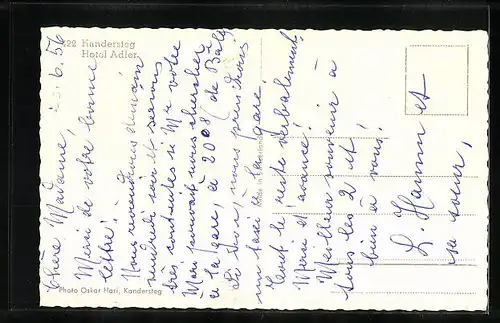 222 Kandersteg
Hotel Adler
6.56
Chère Madame,
Merci de votre bonne
lettre!
Nous reviendrons demain
mercredi soir et serons
très contentes si Mr votre
Mari pouvait nous chercher
à la gare, à 20 08 (de Bâle)
Si non, nous prendrons
un taxi à la gare.
Tout le reste verbalement!
Merci d'avance!
Meilleur souvenir à
tous les 2 et
bien à vous!
L. Hamm et
sa soeur,
Made in Switzerland
Photo Oskar Hari, Kandersteg